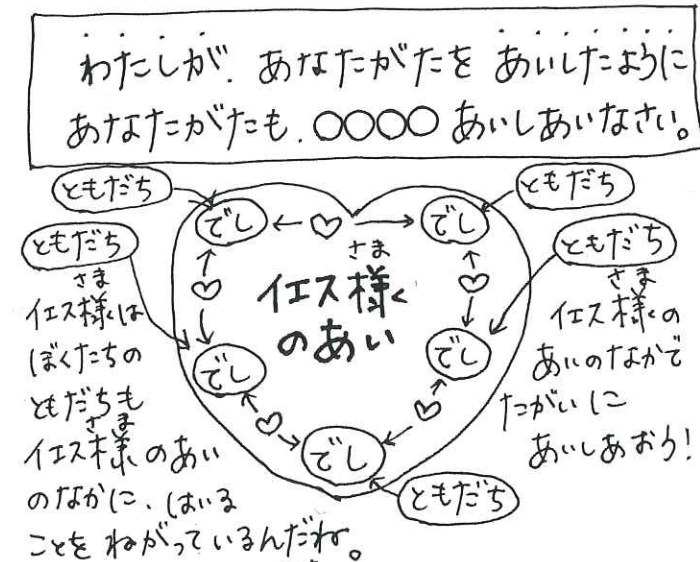 わたしが、あなたがたを あいしたように
あなたがたも、○○○○ あいしあいなさい。
ともだち
ともだち
でし
でし
ともだち
ともだち
さま
イエス様
のあい
さま
イエス様は
ぼくたちの
ともだちも
さま
イエス様のあい
のなかに、はいる
ことを ねがっているんだね。
でし
でし
でし
さま
イエス様の
あいのなかで
たがいに
あいしあおう!
ともだち